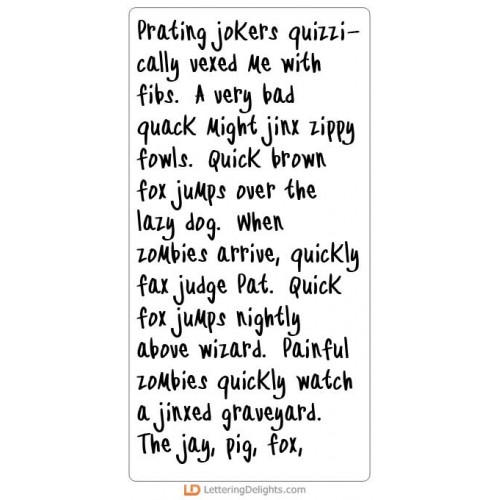 Prating jokers quizzi-
cally vexed me with
fibs. A very bad
quack might jinx zippy
fowls. Quick brown
fox jumps over the
lazy dog. When
zombies arrive, quickly
fax judge Pat. Quick
fox jumps nightly
above wizard. Painful
zombies quickly watch
a jinxed graveyard.
The jay, pig, fox,
LD LetteringDelights.com